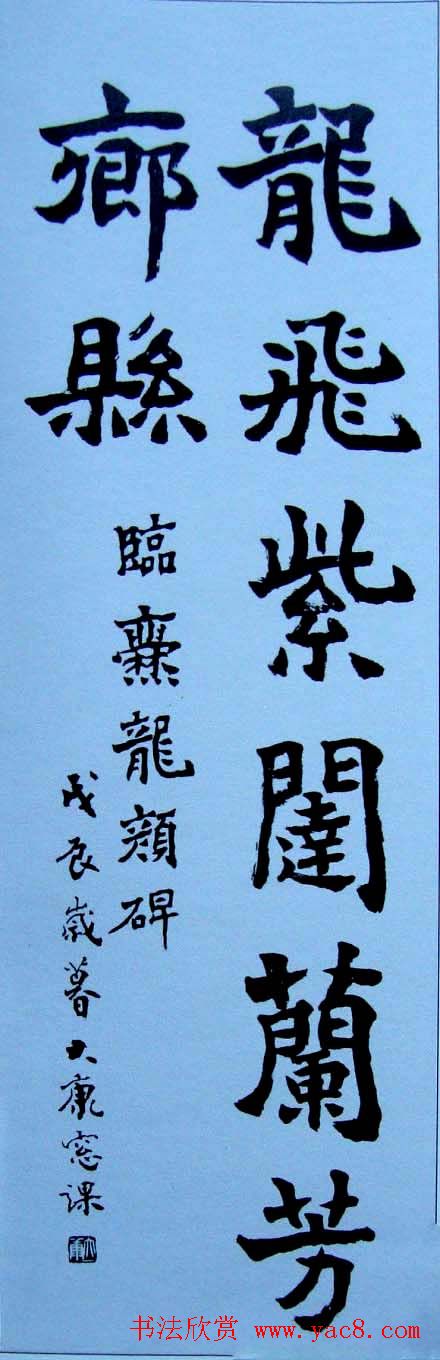 龍飛紫闥蘭芳
廊縣
臨爨龍顏碑
戊辰歲暮大康窓課
大康
书法欣赏 www.yac8.com